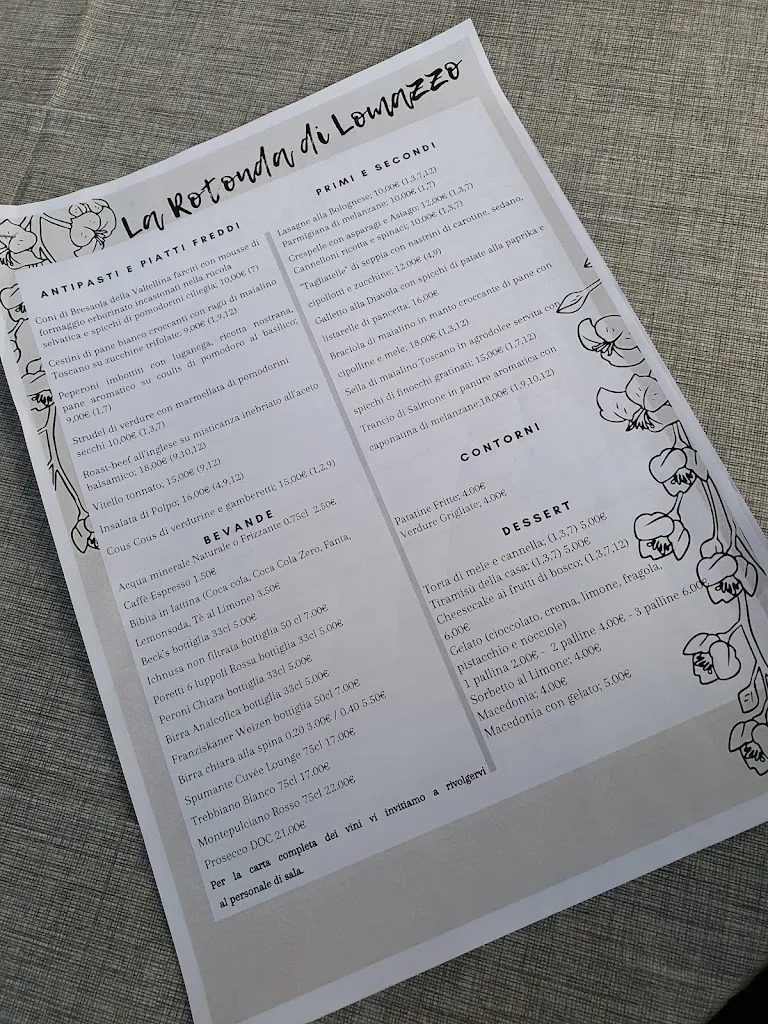 La Rotonda di Lomazzo
ANTIPASTI E PIATTI FREDDI
Coni di Bresaola della Valtellina farciti con mousse di
formaggio erborinato incastonati nella rucola
selvatica e spicchi di pomodorini ciliegia; 10,00€ (7)
Cestini di pane bianco croccanti con ragù di maialino
Toscano su zucchine trifolate; 9,00€ (1,9,12)
Peperoni imbottiti con luganega, ricotta nostrana,
pane aromatico su coulis di pomodoro al basilico;
9,00€ (1,7)
Strudel di verdure con marmellata di pomodorini
secchi 10,00€ (1,3,7)
Roast-beef all'inglese su misticanza inebriato all'aceto
balsamico; 18,00€ (9,10,12)
Vitello tonnato; 15,00€ (9,12)
Insalata di Polpo; 16,00€ (4,9,12)
Cous Cous di verdurine e gamberetti; 15,00€ (1,2,9)
BEVANDE
Acqua minerale Naturale o Frizzante 0.75cl 2.50€
Caffè Espresso 1.50€
Bibita in lattina (Coca cola, Coca Cola Zero, Fanta,
Lemonsoda, Tè al Limone) 3.50€
Beck's bottiglia 33cl 5.00€
Ichnusa non filtrata bottiglia 50 cl 7.00€
Poretti 6 luppoli Rossa bottiglia 33cl 5.00€
Peroni Chiara bottiglia 33cl 5.00€
Birra Analcolica bottiglia 33cl 5.00€
Franziskaner Weizen bottiglia 50cl 7.00€
Birra chiara alla spina 0.20 3.00€ / 0.40 5.50€
Spumante Cuvèe Lounge 75cl 17.00€
Trebbiano Bianco 75cl 17.00€
Montepulciano Rosso 75cl 22.00€
Prosecco DOC 21.00€
Per la carta completa dei vini vi invitiamo a rivolgervi
al personale di sala.
PRIMI E SECONDI
Lasagne alla Bolognese; 10,00€ (1,3,7,12)
Parmigiana di melanzane; 10,00€ (1,7)
Crespelle con asparagi e Asiago; 12,00€ (1,3,7)
Cannelloni ricotta e spinaci; 10,00€ (1,3,7)
"Tagliatelle" di seppia con nastrini di carotine, sedano,
cipollotti e zucchine; 12,00€ (4,9)
Galletto alla Diavola con spicchi di patate alla paprika e
listarelle di pancetta; 16,00€
Braciola di maialino in manto croccante di pane con
cipolline e mele; 18,00€ (1,3,12)
Sella di maialino Toscano in agrodolce servita con
spicchi di finocchi gratinati; 15,00€ (1,7,12)
Trancio di Salmone in panure aromatica con
caponatina di melanzane;18,00€ (1,9,10,12)
CONTORNI
Patatine Fritte; 4,00€
Verdure Grigliate; 4,00€
DESSERT
Torta di mele e cannella; (1,3,7) 5,00€
Tiramisù della casa; (1,3,7) 5,00€
Cheesecake ai frutti di bosco; (1,3,7,12)
6,00€
Gelato (cioccolato, crema, limone, fragola,
pistacchio e nocciole)
1 pallina 2,00€ - 2 palline 4,00€ - 3 palline 6,00€
Sorbetto al Limone; 4,00€
Macedonia; 4,00€
Macedonia con gelato; 5,00€